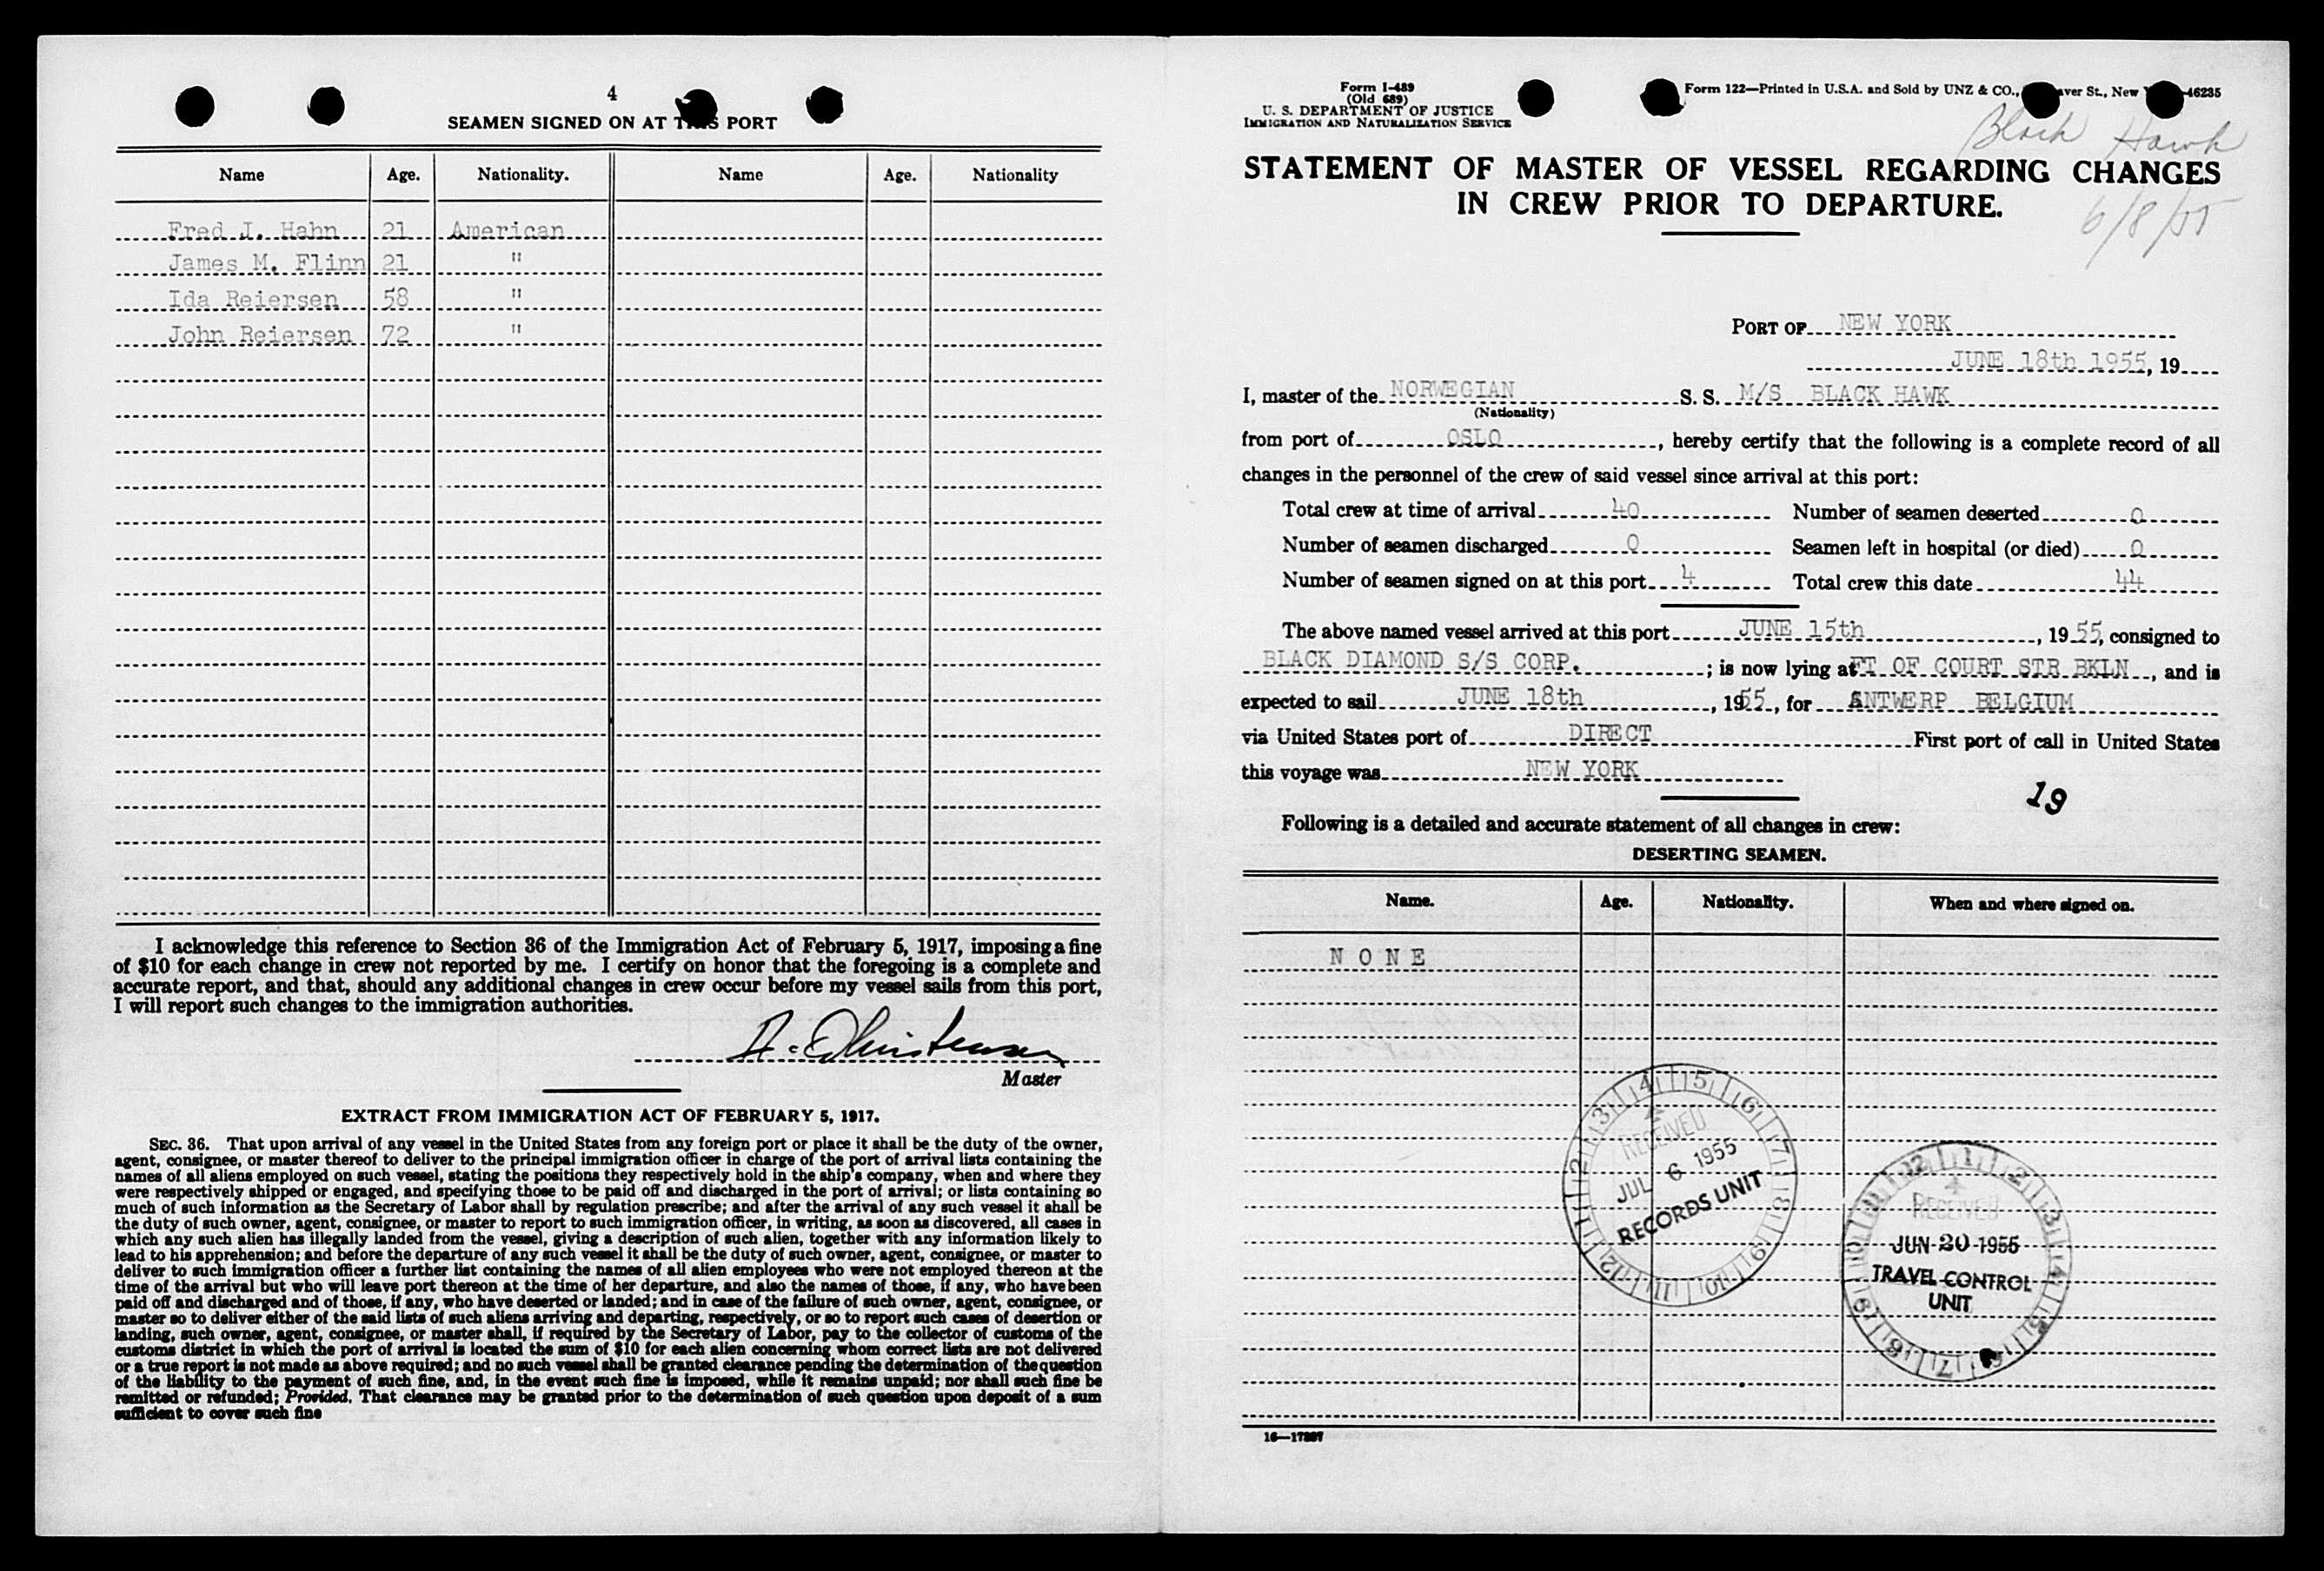 4
SEAMEN SIGNED ON AT THIS PORT
Name Age. Nationality. Name Age. Nationality
Fred J. Hahn 21 American
James M. Flinn 21 "
Ida Reiersen 58 "
John Reiersen 72 "
I acknowledge this reference to Section 36 of the Immigration Act of February 5, 1917, imposing a fine
of $10 for each change in crew not reported by me. I certify on honor that the foregoing is a complete and
accurate report, and that, should any additional changes in crew occur before my vessel sails from this port,
I will report such changes to the immigration authorities.
A. Christensen
Master
EXTRACT FROM IMMIGRATION ACT OF FEBRUARY 5, 1917.
SEC. 36. That upon arrival of any vessel in the United States from any foreign port or place it shall be the duty of the owner,
agent, consignee, or master thereof to deliver to the principal immigration officer in charge of the port of arrival lists containing the
names of all aliens employed on such vessel, stating the positions they respectively hold in the ship's company, when and where they
were respectively shipped or engaged, and specifying those to be paid off and discharged in the port of arrival; or lists containing so
much of such information as the Secretary of Labor shall by regulation prescribe; and after the arrival of any such vessel it shall be
the duty of such owner, agent, consignee, or master to report to such immigration officer, in writing, as soon as discovered, all cases in
which any such alien has illegally landed from the vessel, giving a description of such alien, together with any information likely to
lead to his apprehension; and before the departure of any such vessel it shall be the duty of such owner, agent, consignee, or master to
deliver to such immigration officer a further list containing the names of all alien employees who were not employed thereon at the
time of the arrival but who will leave port thereon at the time of her departure, and also the names of those, if any, who have been
paid off and discharged and of those, if any, who have deserted or landed; and in case of the failure of such owner, agent, consignee, or
master so to deliver either of the said lists of such aliens arriving and departing, respectively, or so to report such cases of desertion or
landing, such owner, agent, consignee, or master shall, if required by the Secretary of Labor, pay to the collector of customs of the
customs district in which the port of arrival is located the sum of $10 for each alien concerning whom correct lists are not delivered
or a true report is not made as above required; and no such vessel shall be granted clearance pending the determination of the question
of the liability to the payment of such fine, and, in the event such fine is imposed, while it remains unpaid; nor shall such fine be
remitted or refunded; Provided, That clearance may be granted prior to the determination of such question upon deposit of a sum
sufficient to cover such fine
Form I-489
(Old 689)
U. S. DEPARTMENT OF JUSTICE
IMMIGRATION AND NATURALIZATION SERVICE
Form 122—Printed in U.S.A. and Sold by UNZ & CO., aver St., New 46235
Black Hawk
STATEMENT OF MASTER OF VESSEL REGARDING CHANGES
IN CREW PRIOR TO DEPARTURE.
6/8/55
PORT OF NEW YORK
JUNE 18th 1955, 19
I, master of the NORWEGIAN S. S. M/S BLACK HAWK
(Nationality)
from port of OSLO, hereby certify that the following is a complete record of all
changes in the personnel of the crew of said vessel since arrival at this port:
Total crew at time of arrival 40 Number of seamen deserted 0
Number of seamen discharged 0 Seamen left in hospital (or died) 0
Number of seamen signed on at this port 4 Total crew this date 44
The above named vessel arrived at this port JUNE 15th, 1955, consigned to
BLACK DIAMOND S/S CORP.; is now lying at FT OF COURT STR BKLN, and is
expected to sail JUNE 18th, 1955, for ANTWERP BELGIUM
via United States port of DIRECT First port of call in United States
this voyage was NEW YORK
19
Following is a detailed and accurate statement of all changes in crew:
DESERTING SEAMEN.
Name. Age. Nationality. When and where signed on.
N O N E
1 2 3 4 5 6 7 8 9 10 11 12
RECEIVED
JUL 6 1955
RECORDS UNIT
12 1 2 3 4 5 6 7 8 9 10 11
RECEIVED
JUN 20 1955
TRAVEL CONTROL
UNIT